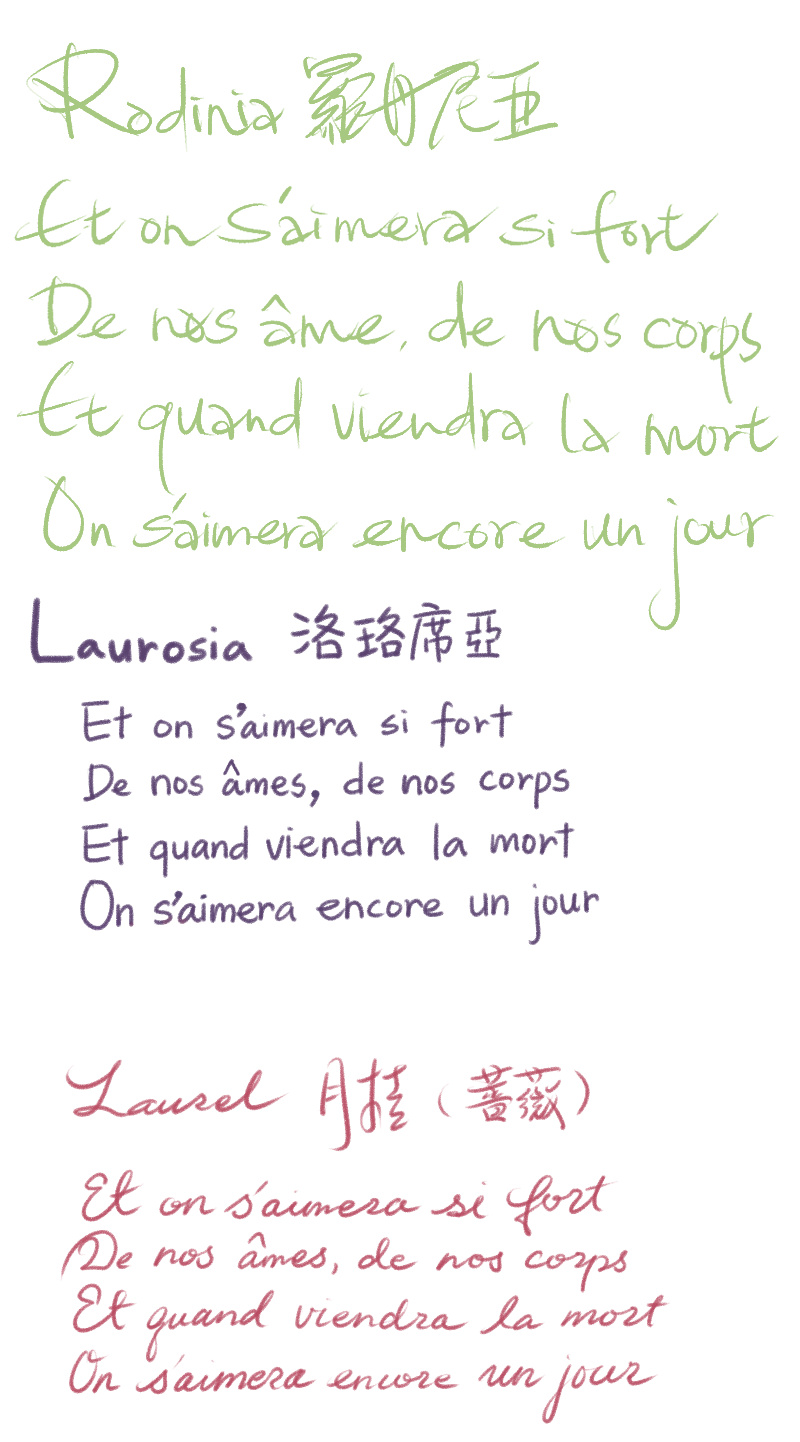 Rodinia 羅丹尼亞
Et on s'aimera si fort
De nos âme, de nos corps
Et quand viendra la mort
On s'aimera encore un jour
Laurosia 洛珞席亞
Et on s'aimera si fort
De nos âmes, de nos corps
Et quand viendra la mort
On s'aimera encore un jour
Laurel 月桂（薔薇）
Et on s'aimera si fort
De nos âmes, de nos corps
Et quand viendra la mort
On s'aimera encore un jour